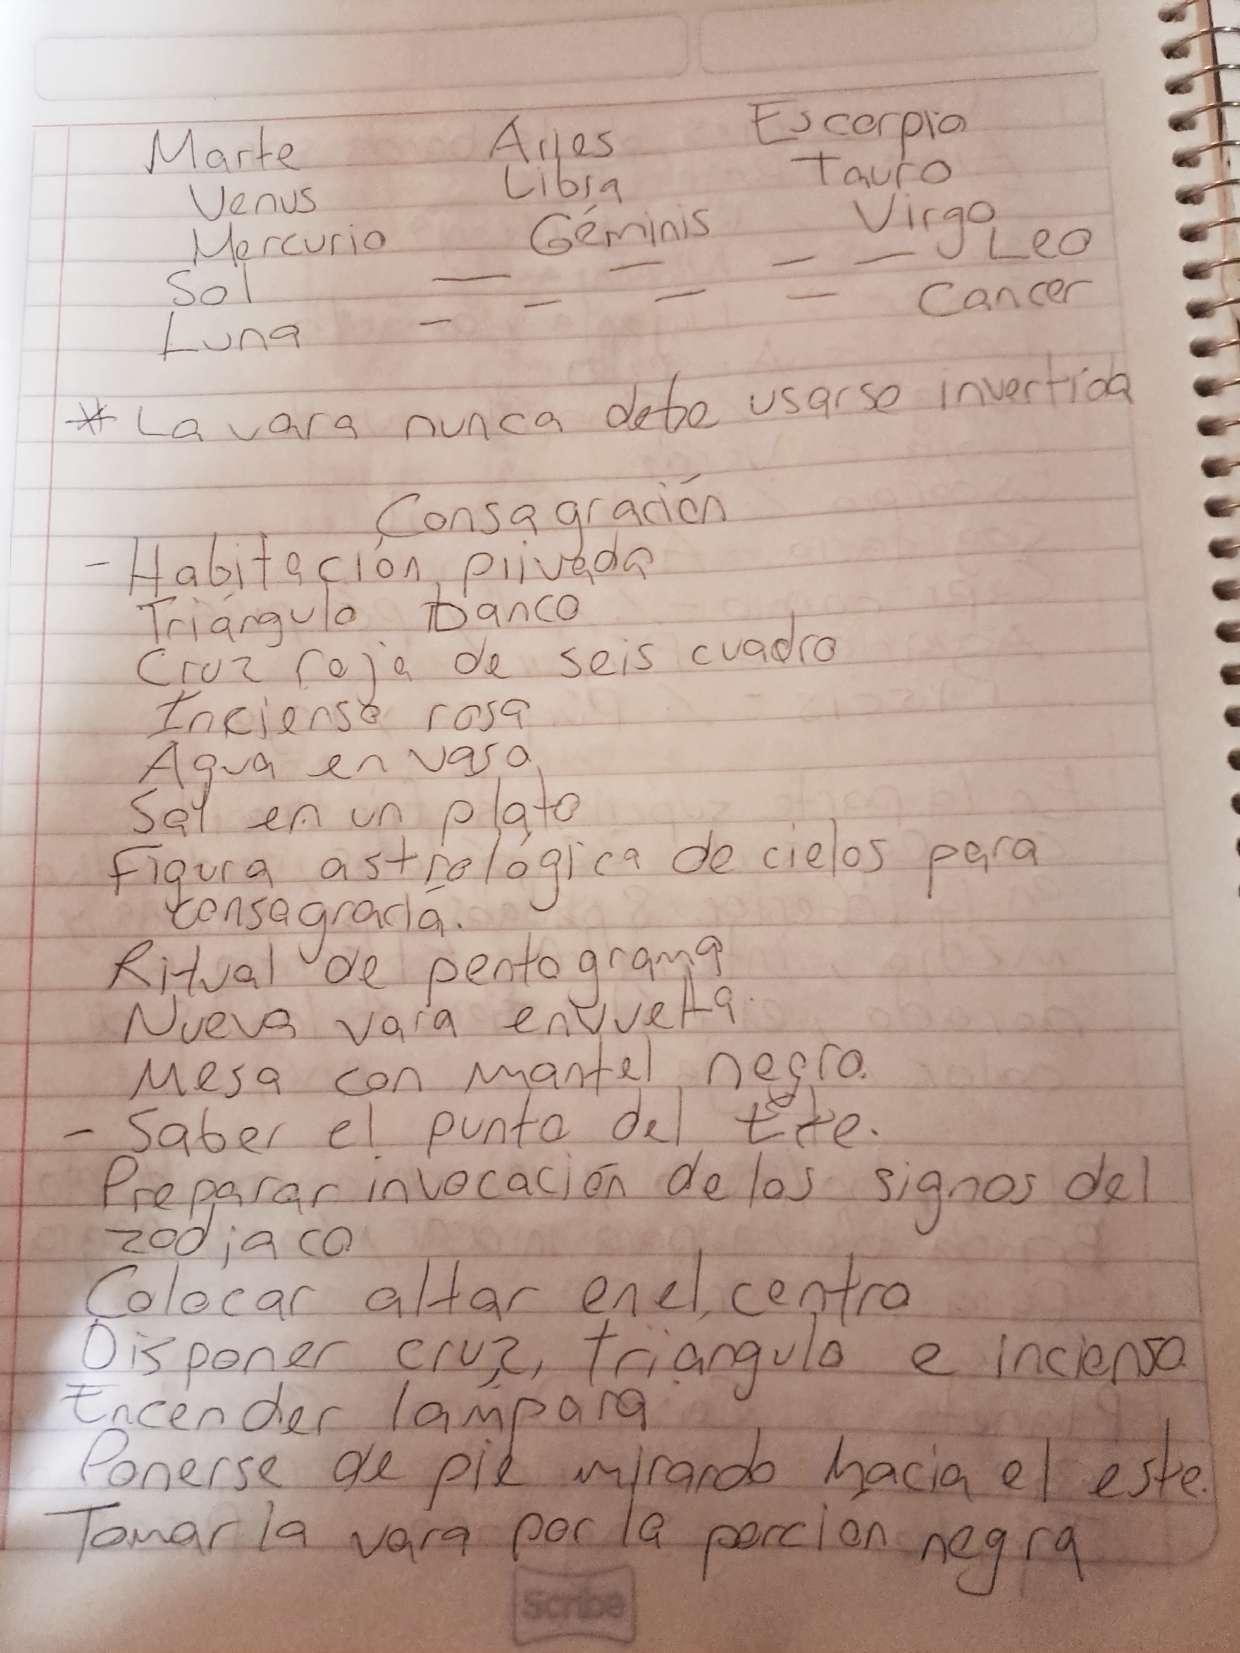 Marte Aries Escorpio
Venus Libra Tauro
Mercurio Géminis Virgo
Sol — — — — Leo
Luna - - - - Cancer
* La vara nunca debe usarse invertida
Consagración
- Habitación privada
Triángulo banco
Cruz roja de seis cuadro
Incienso rosa
Agua en vaso
Sal en un plato
Figura astrológica de cielos para
consagrada.
Ritual de pentograma
Nueva vara envuelta.
Mesa con mantel negro.
- Saber el punto del
Preparar invocación de los signos del
zodiaco
Colocar altar en el centro
Disponer cruz, triangulo e incienso
Encender lámpara
Ponerse de pie mirando hacia el este.
Tomar la vara por la porcion negra
Scribe